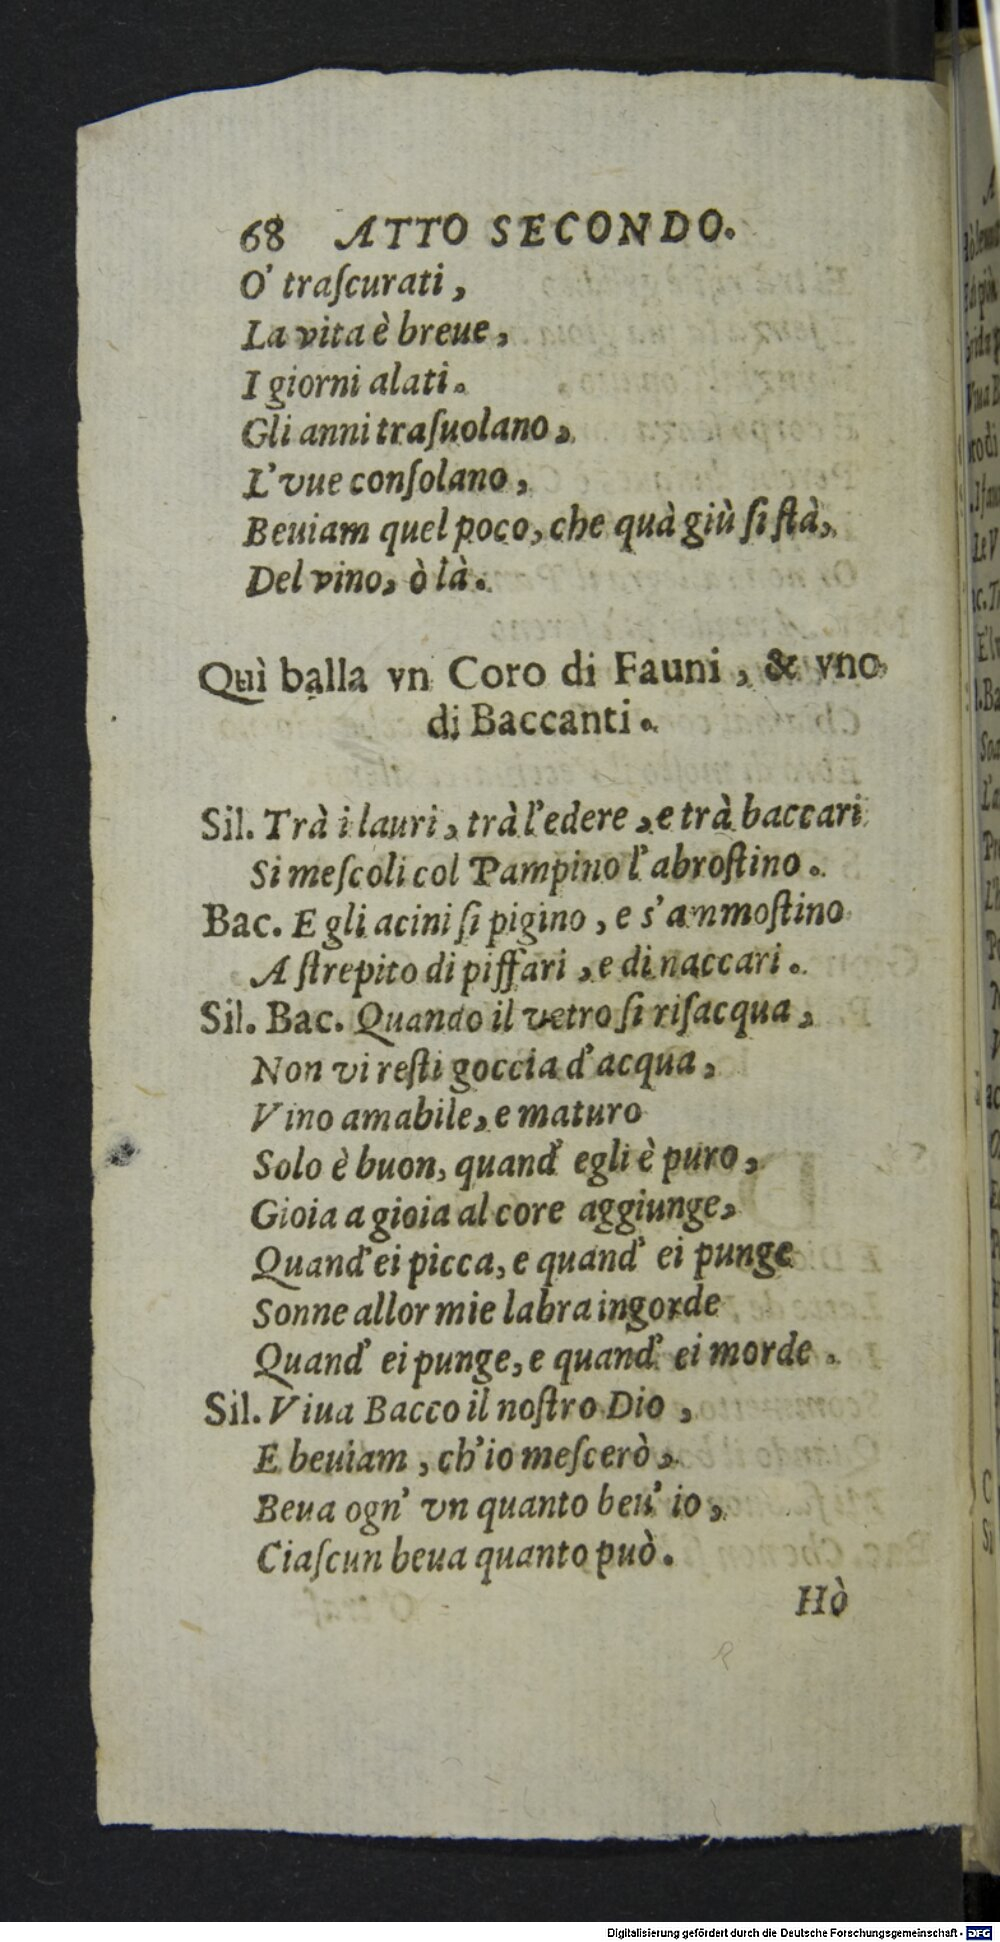 68 ATTO SECONDO.
O' traſcurati,
La vita è breue,
I giorni alati.
Gli anni traſuolano,
L'vue conſolano,
Beuiam quel poco, che quà giù ſi ſtà,
Del vino, ò là.
Quì balla vn Coro di Fauni, & vno
di Baccanti.
Sil. Trà i lauri, trà l'edere, e trà baccari
Si meſcoli col Pampino l'abroſtino.
Bac. E gli acini ſi pigino, e s'ammoſtino
A ſtrepito di piffari, e di naccari.
Sil. Bac. Quando il vetro ſi riſacqua,
Non vi reſti goccia d'acqua,
Vino amabile, e maturo
Solo è buon, quand' egli è puro,
Gioia a gioia al core aggiunge,
Quand' ei picca, e quand' ei punge
Sonne allor mie labra ingorde
Quand' ei punge, e quand' ei morde.
Sil. Viua Bacco il noſtro Dio,
E beuiam, ch'io meſcerò,
Beua ogn' vn quanto beu' io,
Ciaſcun beua quanto può.
Hò
Digitalisierung gefördert durch die Deutsche Forschungsgemeinschaft - DFG